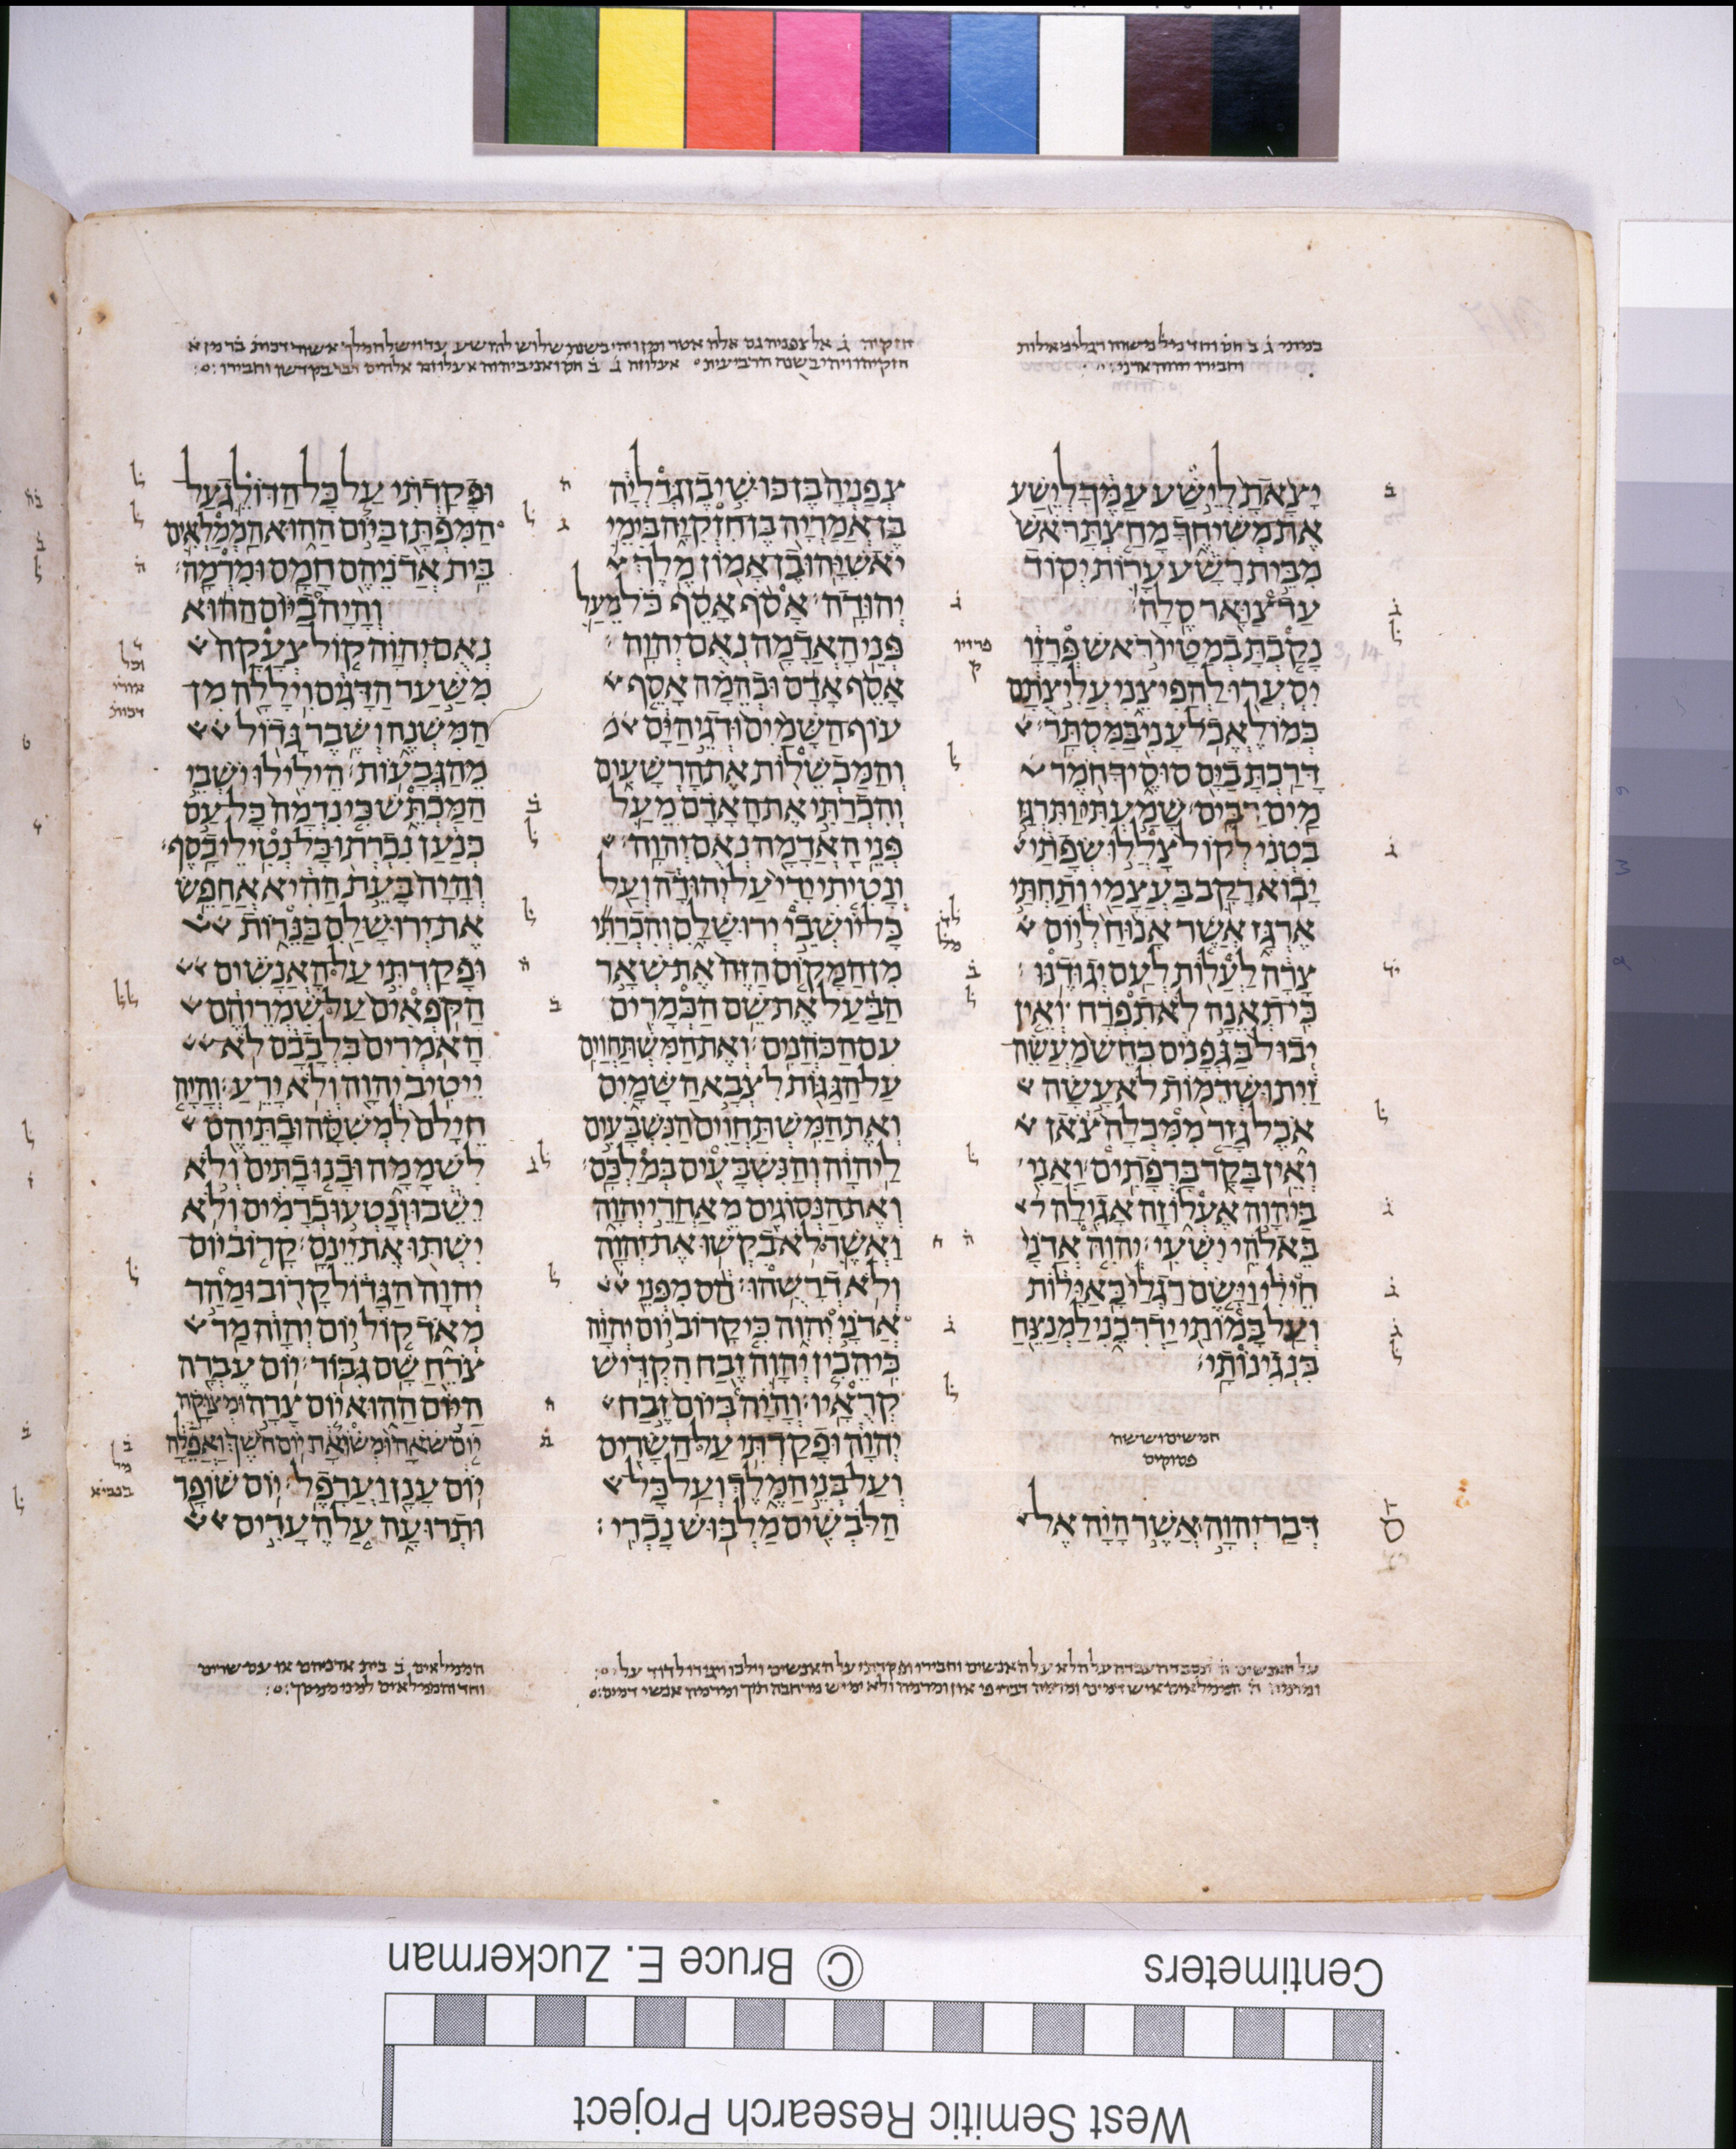 במותי ג ב חס וחד מל משוה רגלי כאילות
וחבירו יהוה אדני
יצאת לישע עמך לישע
את משיחך מחצת ראש
מבית רשע ערות יסוד
עד צואר סלה׃
נקבת במטיו ראש פרזו
יסערו להפיצני עליצתם
כמו לאכל עני במסתר׃
דרכת בים סוסיך חמר
מים רבים׃ שמעתי ותרגז
בטני לקול צללו שפתי
יבוא רקב בעצמי ותחתי
ארגז אשר אנוח ליום
צרה לעלות לעם יגודנו׃
כי תאנה לא תפרח ואין
יבול בגפנים כחש מעשה
זית ושדמות לא עשה
אכל גזר ממכלה צאן
ואין בקר ברפתים׃ ואני
ביהוה אעלוזה אגילה
באלהי ישעי׃ יהוה אדני
חילי וישם רגלי כאילות
ועל במותי ידרכני למנצח
בנגינותי׃
חמשים וששה
פסוקים
דבר יהוה אשר היה אל
פרזיו
ק
צפניה בן כושי בן גדליה
בן אמריה בן חזקיה בימי
יאשיהו בן אמון מלך
יהודה׃ אסף אסף כל מעל
פני האדמה נאם יהוה׃
אסף אדם ובהמה אסף
עוף השמים ודגי הים
והמכשלות את הרשעים
והכרתי את האדם מעל
פני האדמה נאם יהוה׃
ונטיתי ידי על יהודה ועל
כל יושבי ירושלם והכרתי
מן המקום הזה את שאר
הבעל את שם הכמרים
עם הכהנים׃ ואת המשתחוים
על הגגות לצבא השמים
ואת המשתחוים הנשבעים
ליהוה והנשבעים במלכם׃
ואת הנסוגים מאחרי יהוה
ואשר לא בקשו את יהוה
ולא דרשהו׃ הס מפני
אדני יהוה כי קרוב יום יהוה
כי הכין יהוה זבח הקדיש
קראיו׃ והיה ביום זבח
יהוה ופקדתי על השרים
ועל בני המלך ועל כל
הלבשים מלבוש נכרי׃
ופקדתי על כל הדולג על
המפתן ביום ההוא הממלאים
בית אדניהם חמס ומרמה׃
והיה ביום ההוא
נאם יהוה קול צעקה
משער הדגים ויללה מן
המשנה ושבר גדול
מהגבעות׃ הילילו ישבי
המכתש כי נדמה כל עם
כנען נכרתו כל נטילי כסף׃
והיה בעת ההיא אחפש
את ירושלם בנרות
ופקדתי על האנשים
הקפאים על שמריהם
האמרים בלבבם לא
ייטיב יהוה ולא ירע׃ והיה
חילם למשסה ובתיהם
לשממה ובנו בתים ולא
ישבו ונטעו כרמים ולא
ישתו את יינם׃ קרוב יום
יהוה הגדול קרוב ומהר
מאד קול יום יהוה מר
צרח שם גבור׃ יום עברה
היום ההוא יום צרה ומצוקה
יום שאה ומשואה יום חשך ואפלה
יום ענן וערפל׃ יום שופר
ותרועה על הערים
© Bruce E. Zuckerman
Centimeters
West Semitic Research Project